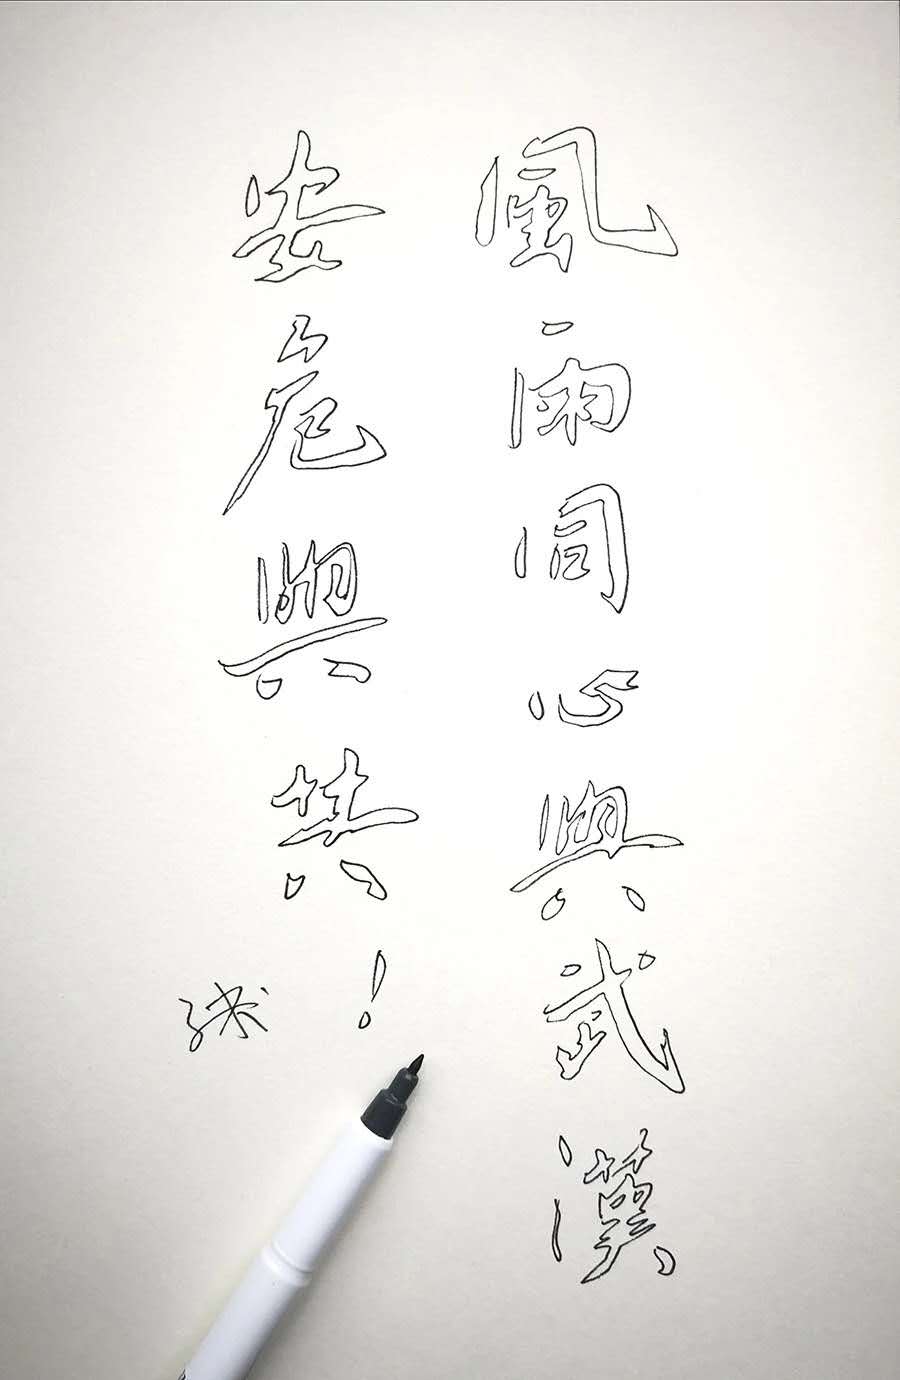 風雨同心與武漢
安危與共!